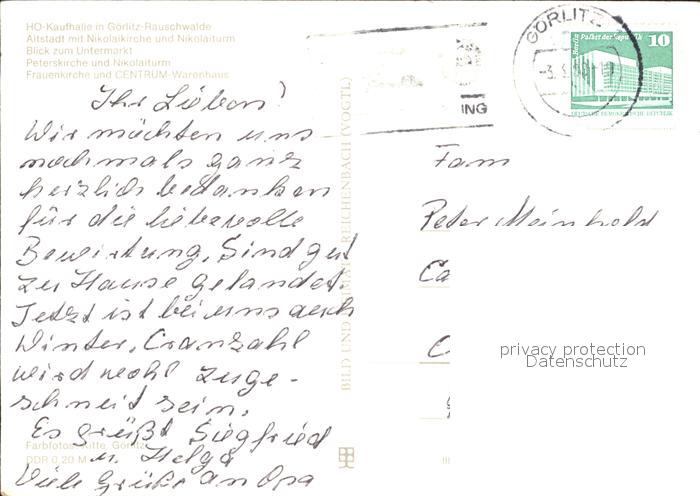 HO-Kaufhalle in Görlitz-Rauschwalde
Altstadt mit Nikolaikirche und Nikolaiturm
Blick zum Untermarkt
Peterskirche und Nikolaiturm
Frauenkirche und CENTRUM-Warenhaus
Ihr Lieben!
Wir möchten uns
nochmals ganz
herzlich bedanken
für die liebevolle
Bewirtung. Sind gut
zu Hause gelandet
Jetzt ist bei uns auch
Winter. Cranzahl
wird wohl zuge-
schneit sein.
Es grüßt Siegfried
u. Helga
Viele Grüße an Opa
Farbfotos: Kitte, Görlitz
DDR 0,20 M
BILD UND HEIMAT REICHENBACH (VOGTL)
ING
GÖRLITZ
Berlin Palast der Republik
10
DEUTSCHE DEMOKRATISCHE REPUBLIK
Fam
Peter Meinhold
Ca
C
privacy protection
Datenschutz